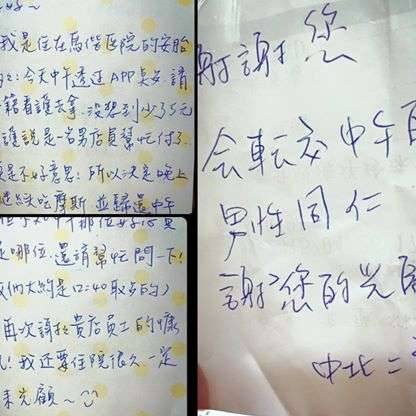 我是住在馬偕医院的安胎
今天中午透过APP 請
看護去拿,沒想到少了5元
護說是一名男店員幫忙付了..
是不好意思!所以次是晚上
想吃摩斯 並歸還中午
那位好心男
是哪位,還請幫忙問一下!
我們大約是12:40取 的)
再次謝謝貴店員工的慷
!我还要住院很久一定
來光顧~
謝謝 您
会転交中午
男性同仁
謝謝您的光顧
中北二